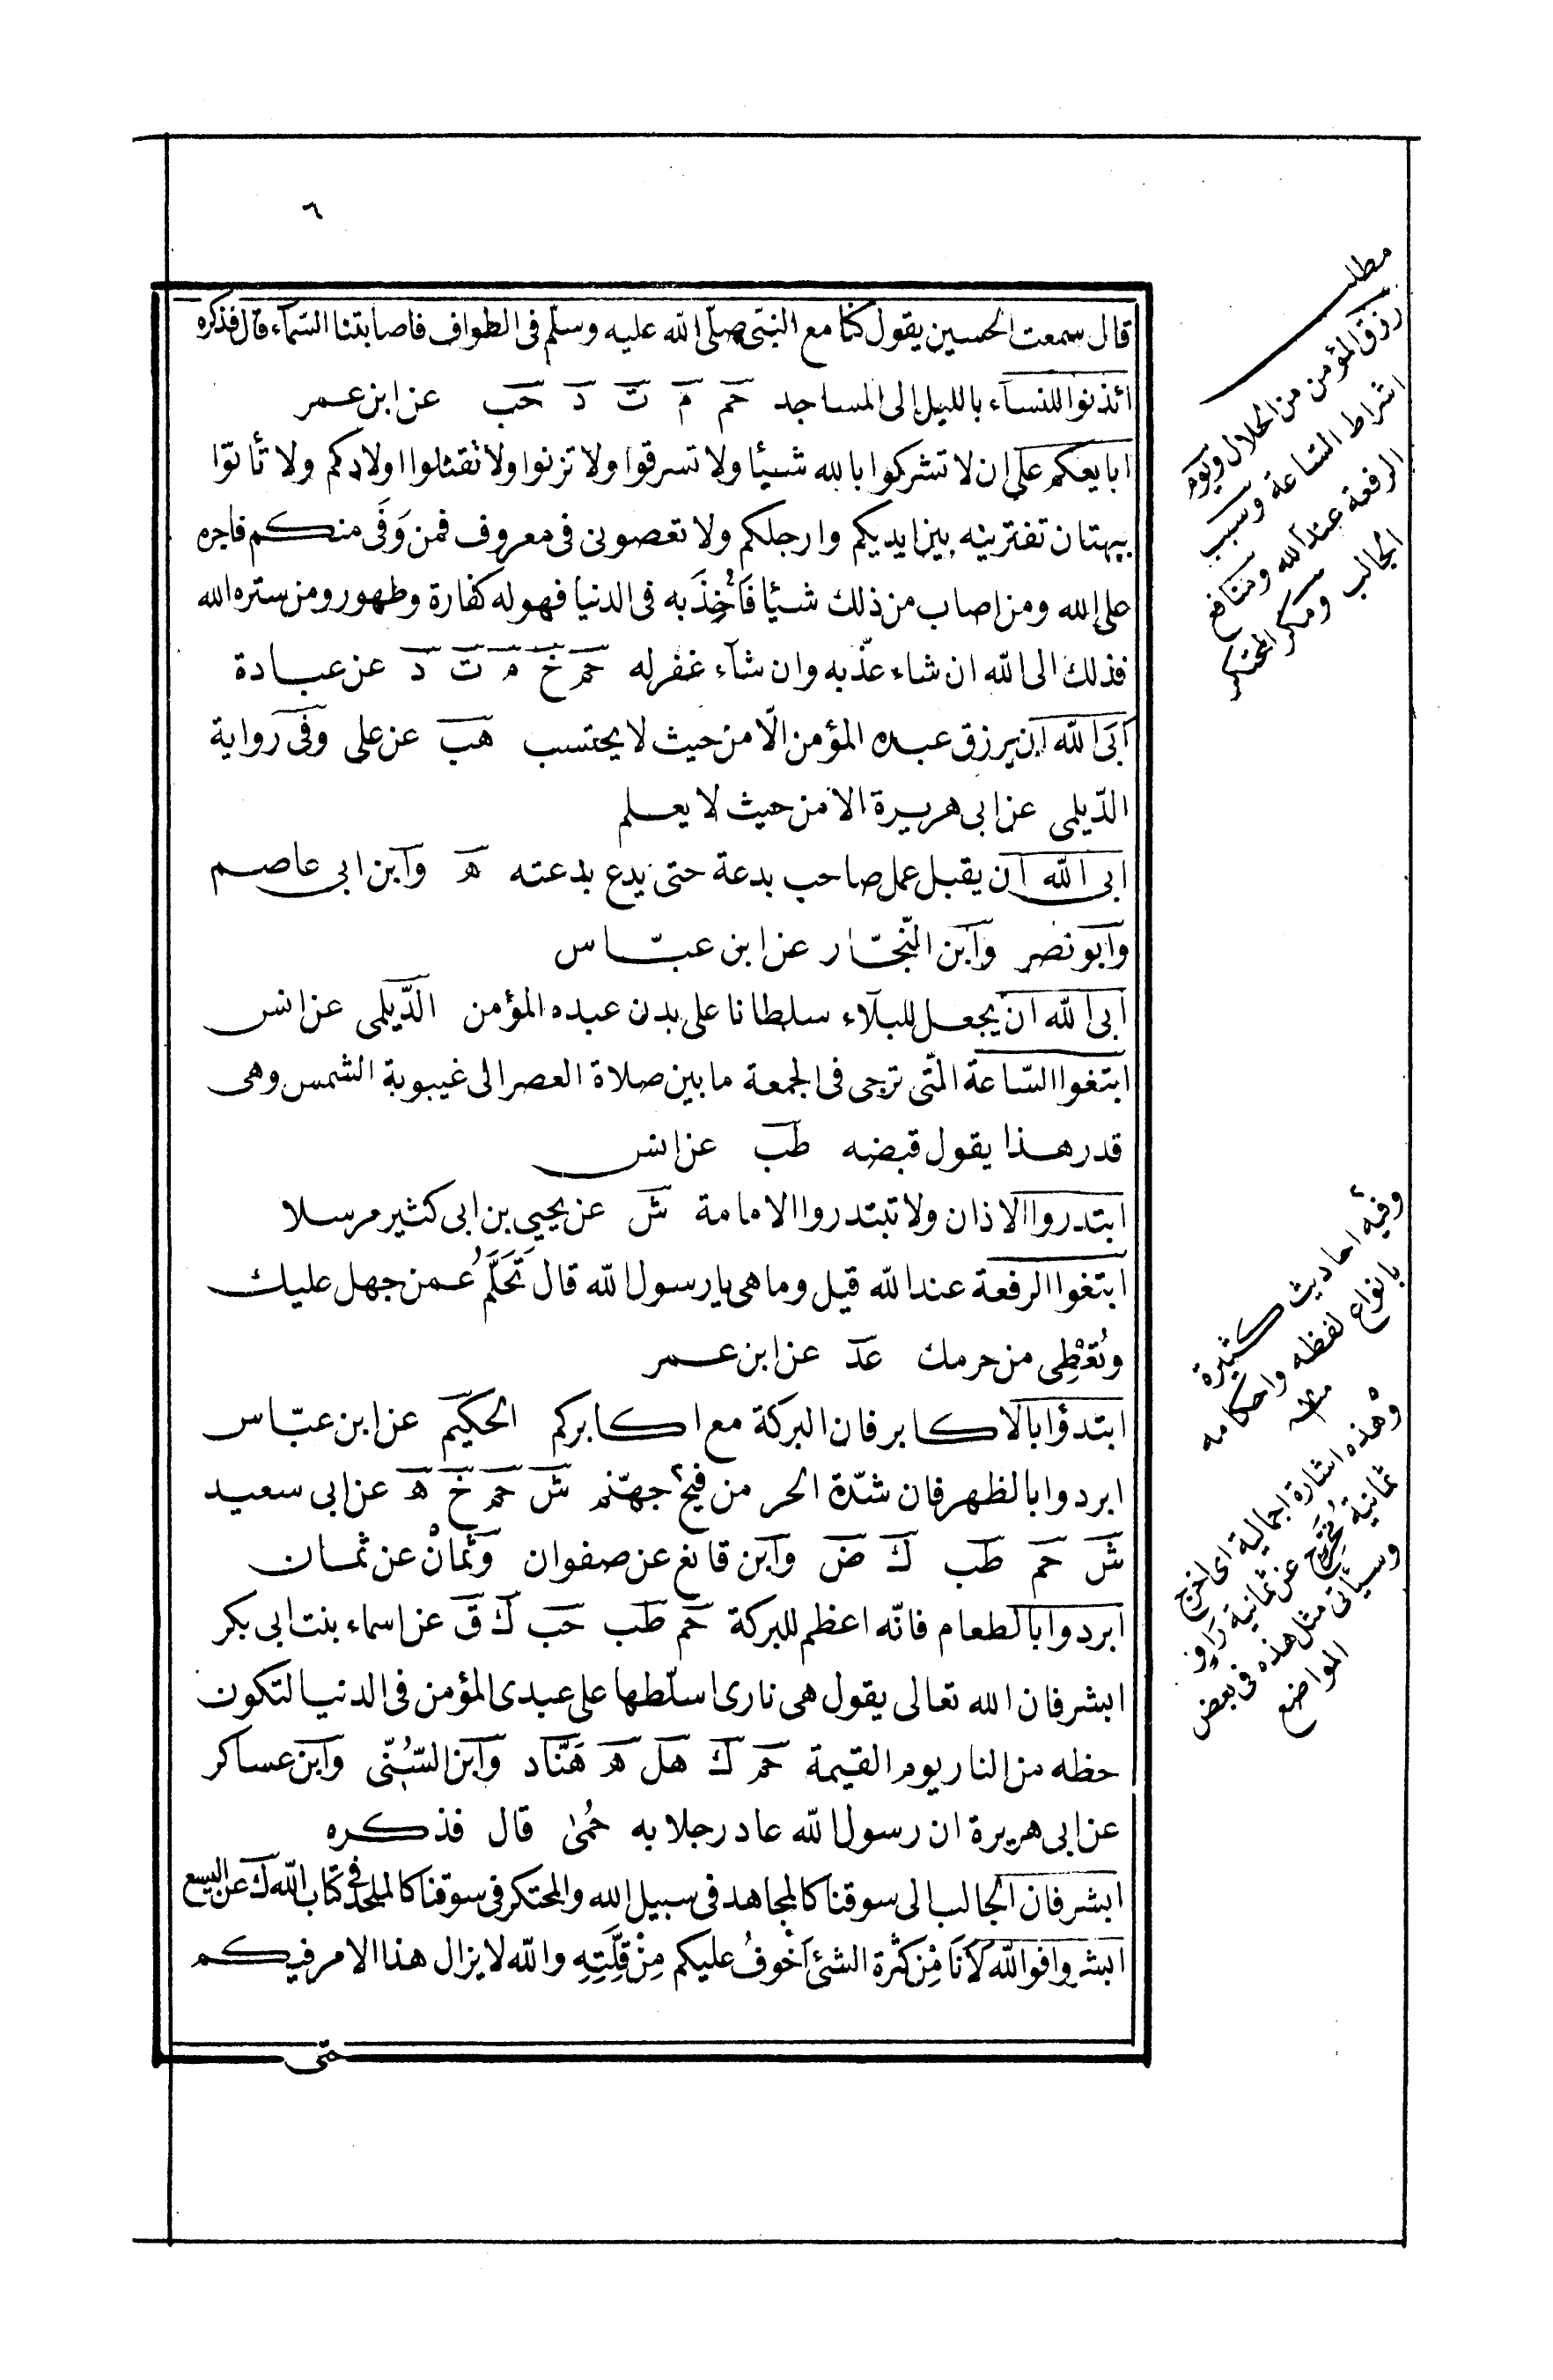 ٦
قال سمعت الحسين يقول كنا مع النبى صلّى الله عليه وسلّم فى الطواف فاصابتنا السّمآء قال فذكره
ائذنوا للنسآء بالليل الى المساجد حم م ت د حب عن ابن عمر
ابايعكم على ان لا تشركوا بالله شيئا ولا تسرقوا ولا تزنوا ولا تقتلوا اولادكم ولا تأتوا
ببهتان تفترينه بين ايديكم وارجلكم ولا تعصونى فى معروف فمن وَفَى منكم فاجره
على الله ومن اصاب من ذلك شيئا فَاُخِذَ به فى الدنيا فهو له كفارة وطهور ومن ستره الله
فذلك الى الله ان شاء عذّبه وان شآء غفر له حم خ م ت د عن عبادة
اَبَى الله ان يرزق عبده المؤمن الّا من حيث لا يحتسب هب عن على وفى رواية
الدّيلمى عن ابى هريرة الا من حيث لا يعلم
ابى الله ان يقبل عمل صاحب بدعة حتى يدع بدعته ه وابن ابى عاصم
وابو نصر وابن النّجّار عن ابن عبّاس
ابى الله ان يجعل للبلآء سلطانا على بدن عبده المؤمن الدّيلمى عن انس
ابتغوا السّاعة الّتى ترجى فى الجمعة ما بين صلاة العصر الى غيبوبة الشمس وهى
قدر هذا يقول قبضه طب عن انس
ابتدروا الاذان ولا تبتدروا الامامة ش عن يحيى بن ابى كثير مرسلا
ابتغوا الرفعة عند الله قيل وما هى يا رسول الله قال تَحَلَّمُ عمن جهل عليك
وتُعْطِى من حرمك عد عن ابن عمر
ابتدؤا بالاكابر فان البركة مع اكابركم الحكيم عن ابن عبّاس
ابردوا بالظهر فان شدّة الحر من فيح جهنّم ش حم خ ه عن ابى سعيد
ش حم طب ك ض وابن قانع عن صفوان وثمانْ عن ثمان
ابردوا بالطعام فانّه اعظم للبركة حم طب حب ك ق عن اسماء بنت ابى بكر
ابشر فان الله تعالى يقول هى نارى اسلّطها على عبدى المؤمن فى الدنيا لتكون
حظه من النار يوم القيمة حم ك هل ه هَنّاد وابن السُّنّى وابن عساكر
عن ابى هريرة ان رسول الله عاد رجلا به حُمّى قال فذكره
ابشر فان الجالب الى سوقنا كالمجاهد فى سبيل الله والمحتكر فى سوقنا كالملحد فى كتاب الله ك عن اليسع
ابشروا فوالله لَاَنَا مِنْ كثرة الشئ اَخْوفُ عليكم مِنْ قِلَّتِهِ والله لا يزال هذا الامر فيكم
حتى
مطلب
رزق المؤمن من الحلال ويوم
اشراط السّاعة وسبب
الرفعة عند الله ومنافع
الجالب ومكر المحتكر
وفيه احاديث كثيرة
بانواع لفظه واحكامه
منه
وهذه اشارة اجمالية اى اخرج
ثمانية مُخَرِّج عن ثمانية راو
وسيأتى مثل هذه فى بعض
المواضع